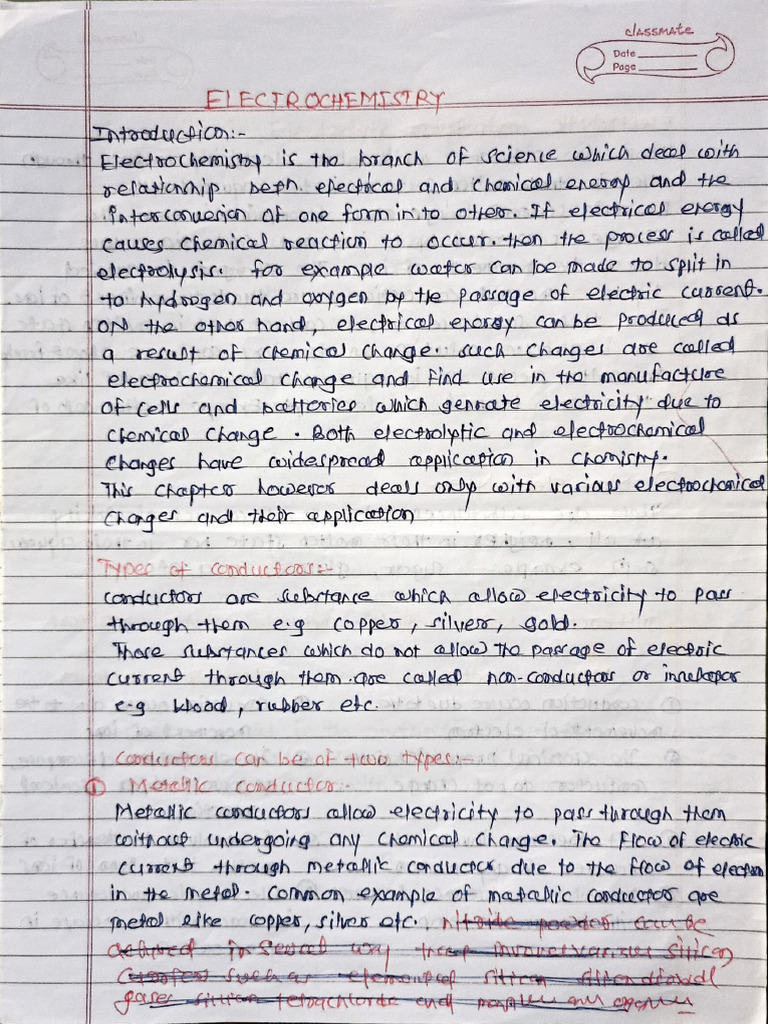 classmate
Date
Page
ELECTROCHEMISTRY
Introduction:-
Electrochemistry is the branch of science which deal with
relationship betn electrical and chemical energy and the
interconversion of one form in to other. If electrical energy
causes chemical reaction to occur. then the process is called
electrolysis. for example water can be made to split in
to hydrogen and oxygen by the passage of electric current.
ON the other hand, electrical energy can be produced as
a result of chemical change. such changes are called
electrochemical change and find use in the manufacture
of cells and batteries which genrate electricity due to
chemical change. Both electrolytic and electrochemical
changes have widespread application in chemistry.
This chapter however deals only with various electrochemical
changes and their application
Types of conductors:-
conductors are substance which allow electricity to pass
through them e.g copper, silver, gold.
Those substances which do not allow the passage of electric
current through them are called non-conductors or insulator
e.g Wood, rubber etc.
conductors can be of two types:-
① Metallic conductor:-
Metallic conductors allow electricity to pass through them
without undergoing any chemical change. The flow of electric
current through metallic conductor due to the flow of electron
in the metal. Common example of matallic conductor are
metal like copper, silver etc. nitride powder can be
in several way silicon
such as silicon
gases silicon tetrachloride and